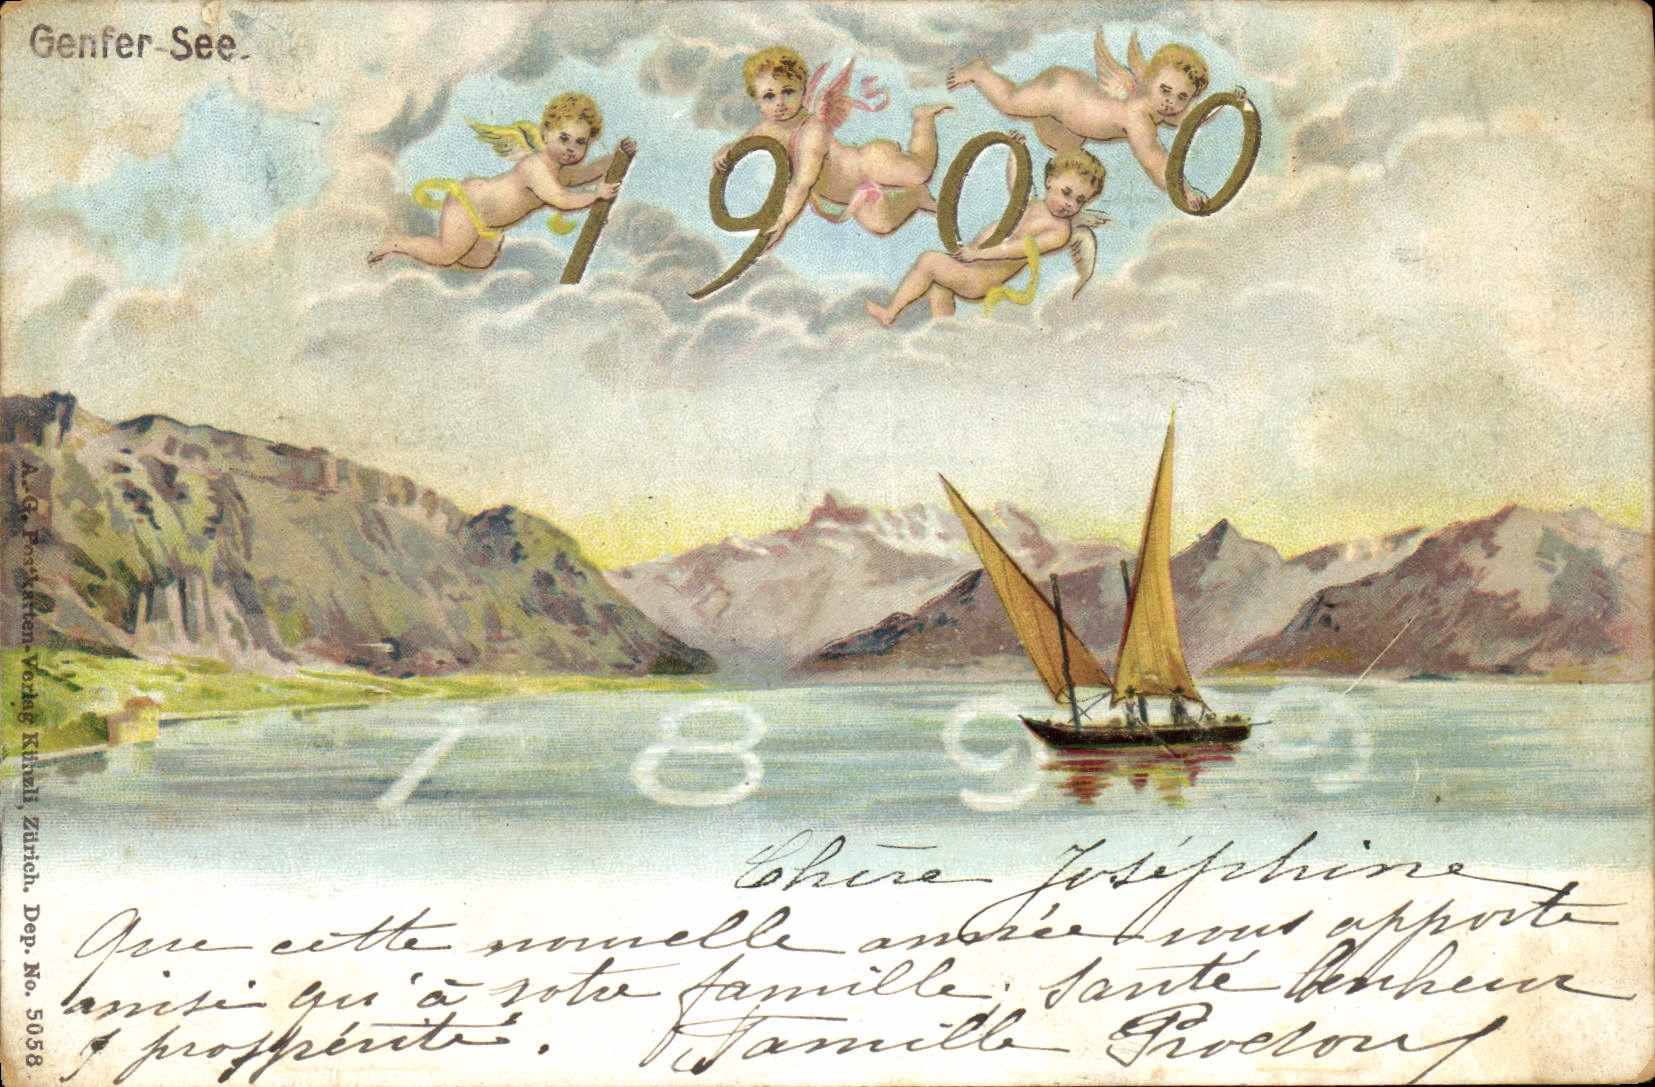 Genfer-See.
1900
1899
A.-G. Postkarten-Verlag Künzli, Zürich. Dep. No. 5058
Chère Joséphine
Que cette nouvelle année vous apporte
ainsi qu'à votre famille, santé bonheur
& prospérité. Famille